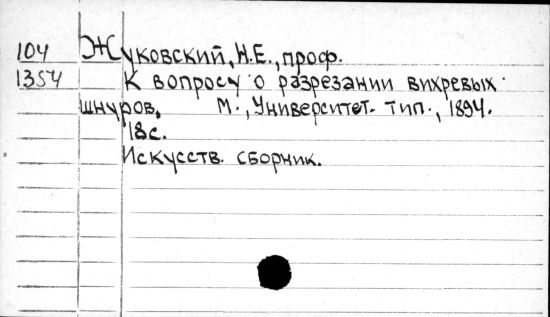 104 Жуковский, Н.Е., проф.
1354 К вопросу о разрезании вихревых
шнуров. М., Университет. тип., 1894.
18с.
Искусств. сборник.